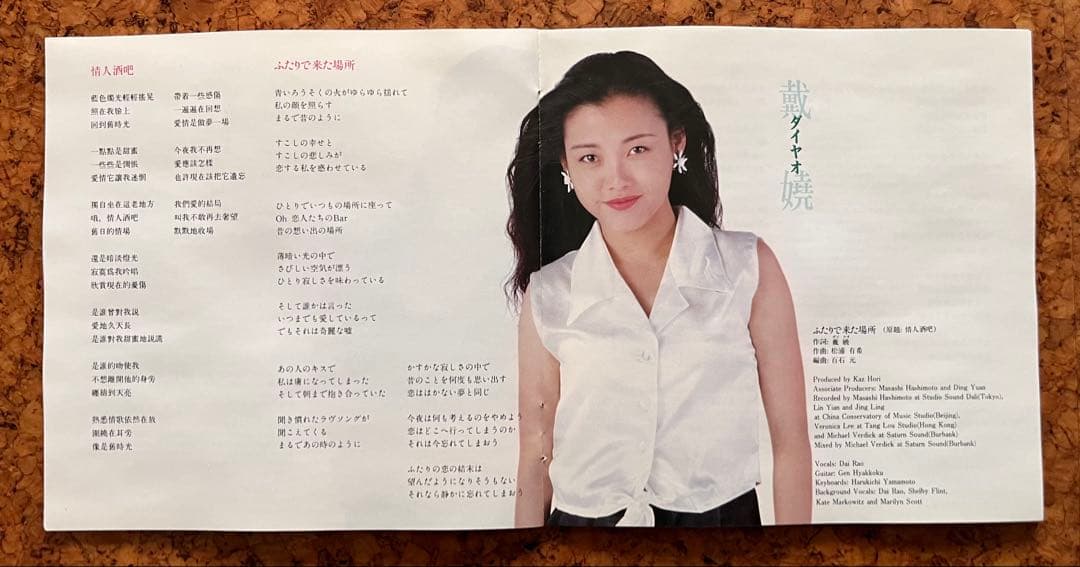 情人酒吧
藍色燭光輕輕搖晃
照在我臉上
回到舊時光
一點點是甜蜜
一些些是惆悵
愛情它讓我迷惘
獨自坐在這老地方
哦，情人酒吧
舊日的情場
還是暗淡燈光
寂寞爲我吟唱
欣賞現在的憂傷
是誰曾對我說
愛地久天長
是誰對我甜蜜地說謊
是誰的吻使我
不想離開他的身旁
纏綿到天亮
熟悉情歌依然在放
圍繞在耳旁
像是舊時光
帶着一些感傷
一遍遍在回想
愛情是做夢一場
今夜我不再想
愛應該怎樣
也許現在該把它遺忘
我們愛的結局
叫我不敢再去奢望
默默地收場
ふたりで来た場所
青いろうそくの火がゆらゆら揺れて
私の顔を照らす
まるで昔のように
すこしの幸せと
すこしの悲しみが
恋する私を惑わせている
ひとりでいつもの場所に座って
Oh 恋人たちのBar
昔の想い出の場所
薄暗い光の中で
さびしい空気が漂う
ひとり寂しさを味わっている
そして誰かは言った
いつまでも愛しているって
でもそれは奇麗な嘘
あの人のキスで
私は虜になってしまった
そして朝まで抱き合っていた
聞き慣れたラヴソングが
聞こえてくる
まるであの時のように
かすかな寂しさの中で
昔のことを何度も思い出す
恋ははかない夢と同じ
今夜は何も考えるのをやめよう
恋はどこへ行ってしまうのか
それは今忘れてしまおう
ふたりの恋の結末は
望んだようになりそうもない
それなら静かに忘れてしまおう
戴嬈
ダイヤオ
ふたりで来た場所 (原題: 情人酒吧)
作詞: 戴 嬈
作曲: 松浦 有希
編曲: 百石 元
Produced by Kaz Hori
Associate Producers: Masashi Hashimoto and Ding Yuan
Recorded by Masashi Hashimoto at Studio Sound Dali(Tokyo),
Lin Yuan and Jing Ling
at China Conservatory of Music Studio(Beijing),
Veronica Lee at Tang Lou Studio(Hong Kong)
and Michael Verdick at Saturn Sound(Burbank)
Mixed by Michael Verdick at Saturn Sound(Burbank)
Vocals: Dai Rao
Guitar: Gen Hyakkoku
Keyboards: Harukichi Yamamoto
Background Vocals: Dai Rao, Shelby Flint,
Kate Markowitz and Marilyn Scott